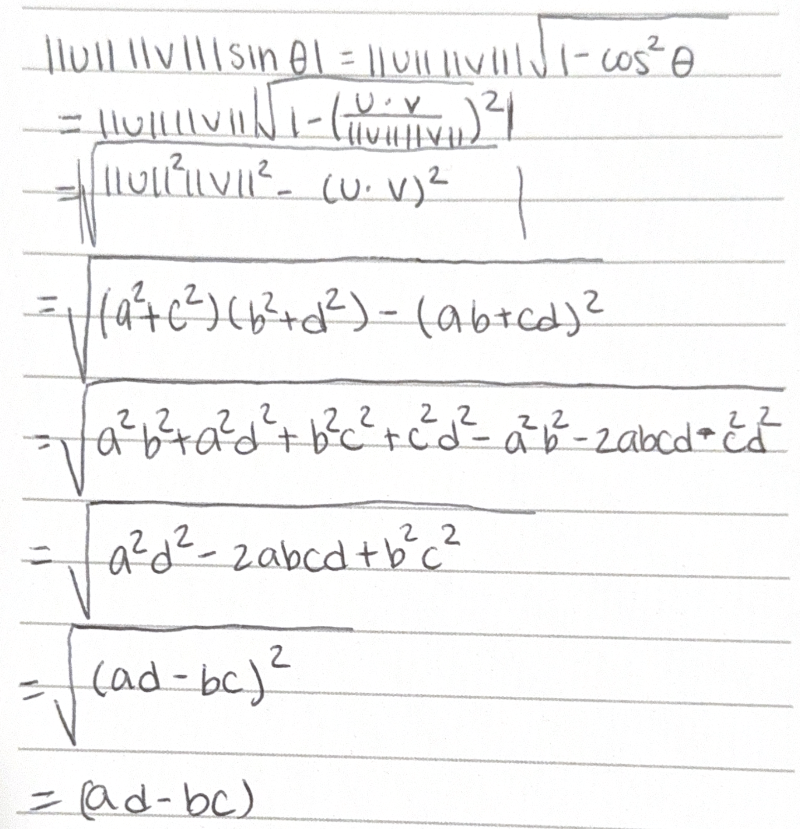 ||u|| ||v|| |sin θ| = ||u|| ||v|| |√(1 - cos² θ)
= ||u|| ||v|| |√(1 - (u · v / ||u|| ||v||)²)|
= |√(||u||² ||v||² - (u · v)²)|
= √((a² + c²)(b² + d²) - (ab + cd)²)
= √(a²b² + a²d² + b²c² + c²d² - a²b² - 2abcd - c²d²)
= √(a²d² - 2abcd + b²c²)
= √((ad - bc)²)
= (ad - bc)